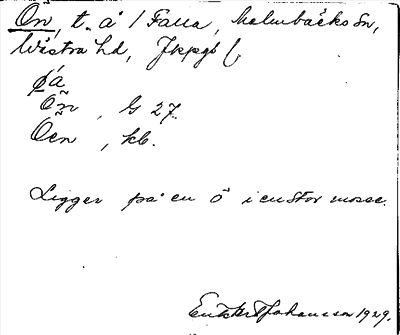 Ön, t. å / Falla, Malmbäcks sn,
Västra hd, Jkpgs l,
på
Ön, G 27.
Öen, kb.
Ligger på en ö i en stor mosse.
Johansson 1929.